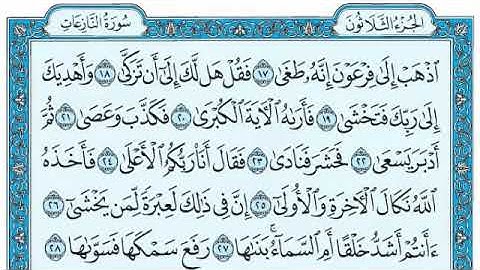 الجزء الثلاثون
سورة النازعات
ٱذۡهَبۡ إِلَىٰ فِرۡعَوۡنَ إِنَّهُۥ طَغَىٰ ١٧ فَقُلۡ هَل لَّكَ إِلَىٰٓ أَن تَزَكَّىٰ ١٨ وَأَهۡدِيَكَ
إِلَىٰ رَبِّكَ فَتَخۡشَىٰ ١٩ فَأَرَىٰهُ ٱلۡأٓيَةَ ٱلۡكُبۡرَىٰ ٢٠ فَكَذَّبَ وَعَصَىٰ ٢١ ثُمَّ
أَدۡبَرَ يَسۡعَىٰ ٢٢ فَحَشَرَ فَنَادَىٰ ٢٣ فَقَالَ أَنَا۠ رَبُّكُمُ ٱلۡأَعۡلَىٰ ٢٤ فَأَخَذَهُ
ٱللَّهُ نَكَالَ ٱلۡأٓخِرَةِ وَٱلۡأُولَىٰٓ ٢٥ إِنَّ فِي ذَٰلِكَ لَعِبۡرَةٗ لِّمَن يَخۡشَىٰٓ ٢٦
ءَأَنتُمۡ أَشَدُّ خَلۡقًا أَمِ ٱلسَّمَآءُۚ بَنَىٰهَا ٢٧ رَفَعَ سَمۡكَهَا فَسَوَّىٰهَا ٢٨